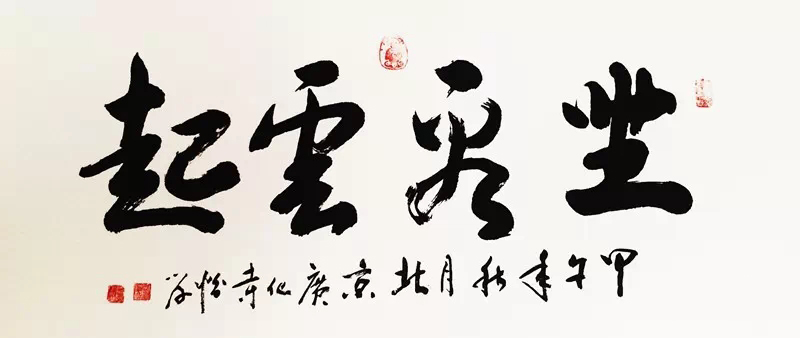 坐看雲起
甲午年秋月北京廣化寺怡学